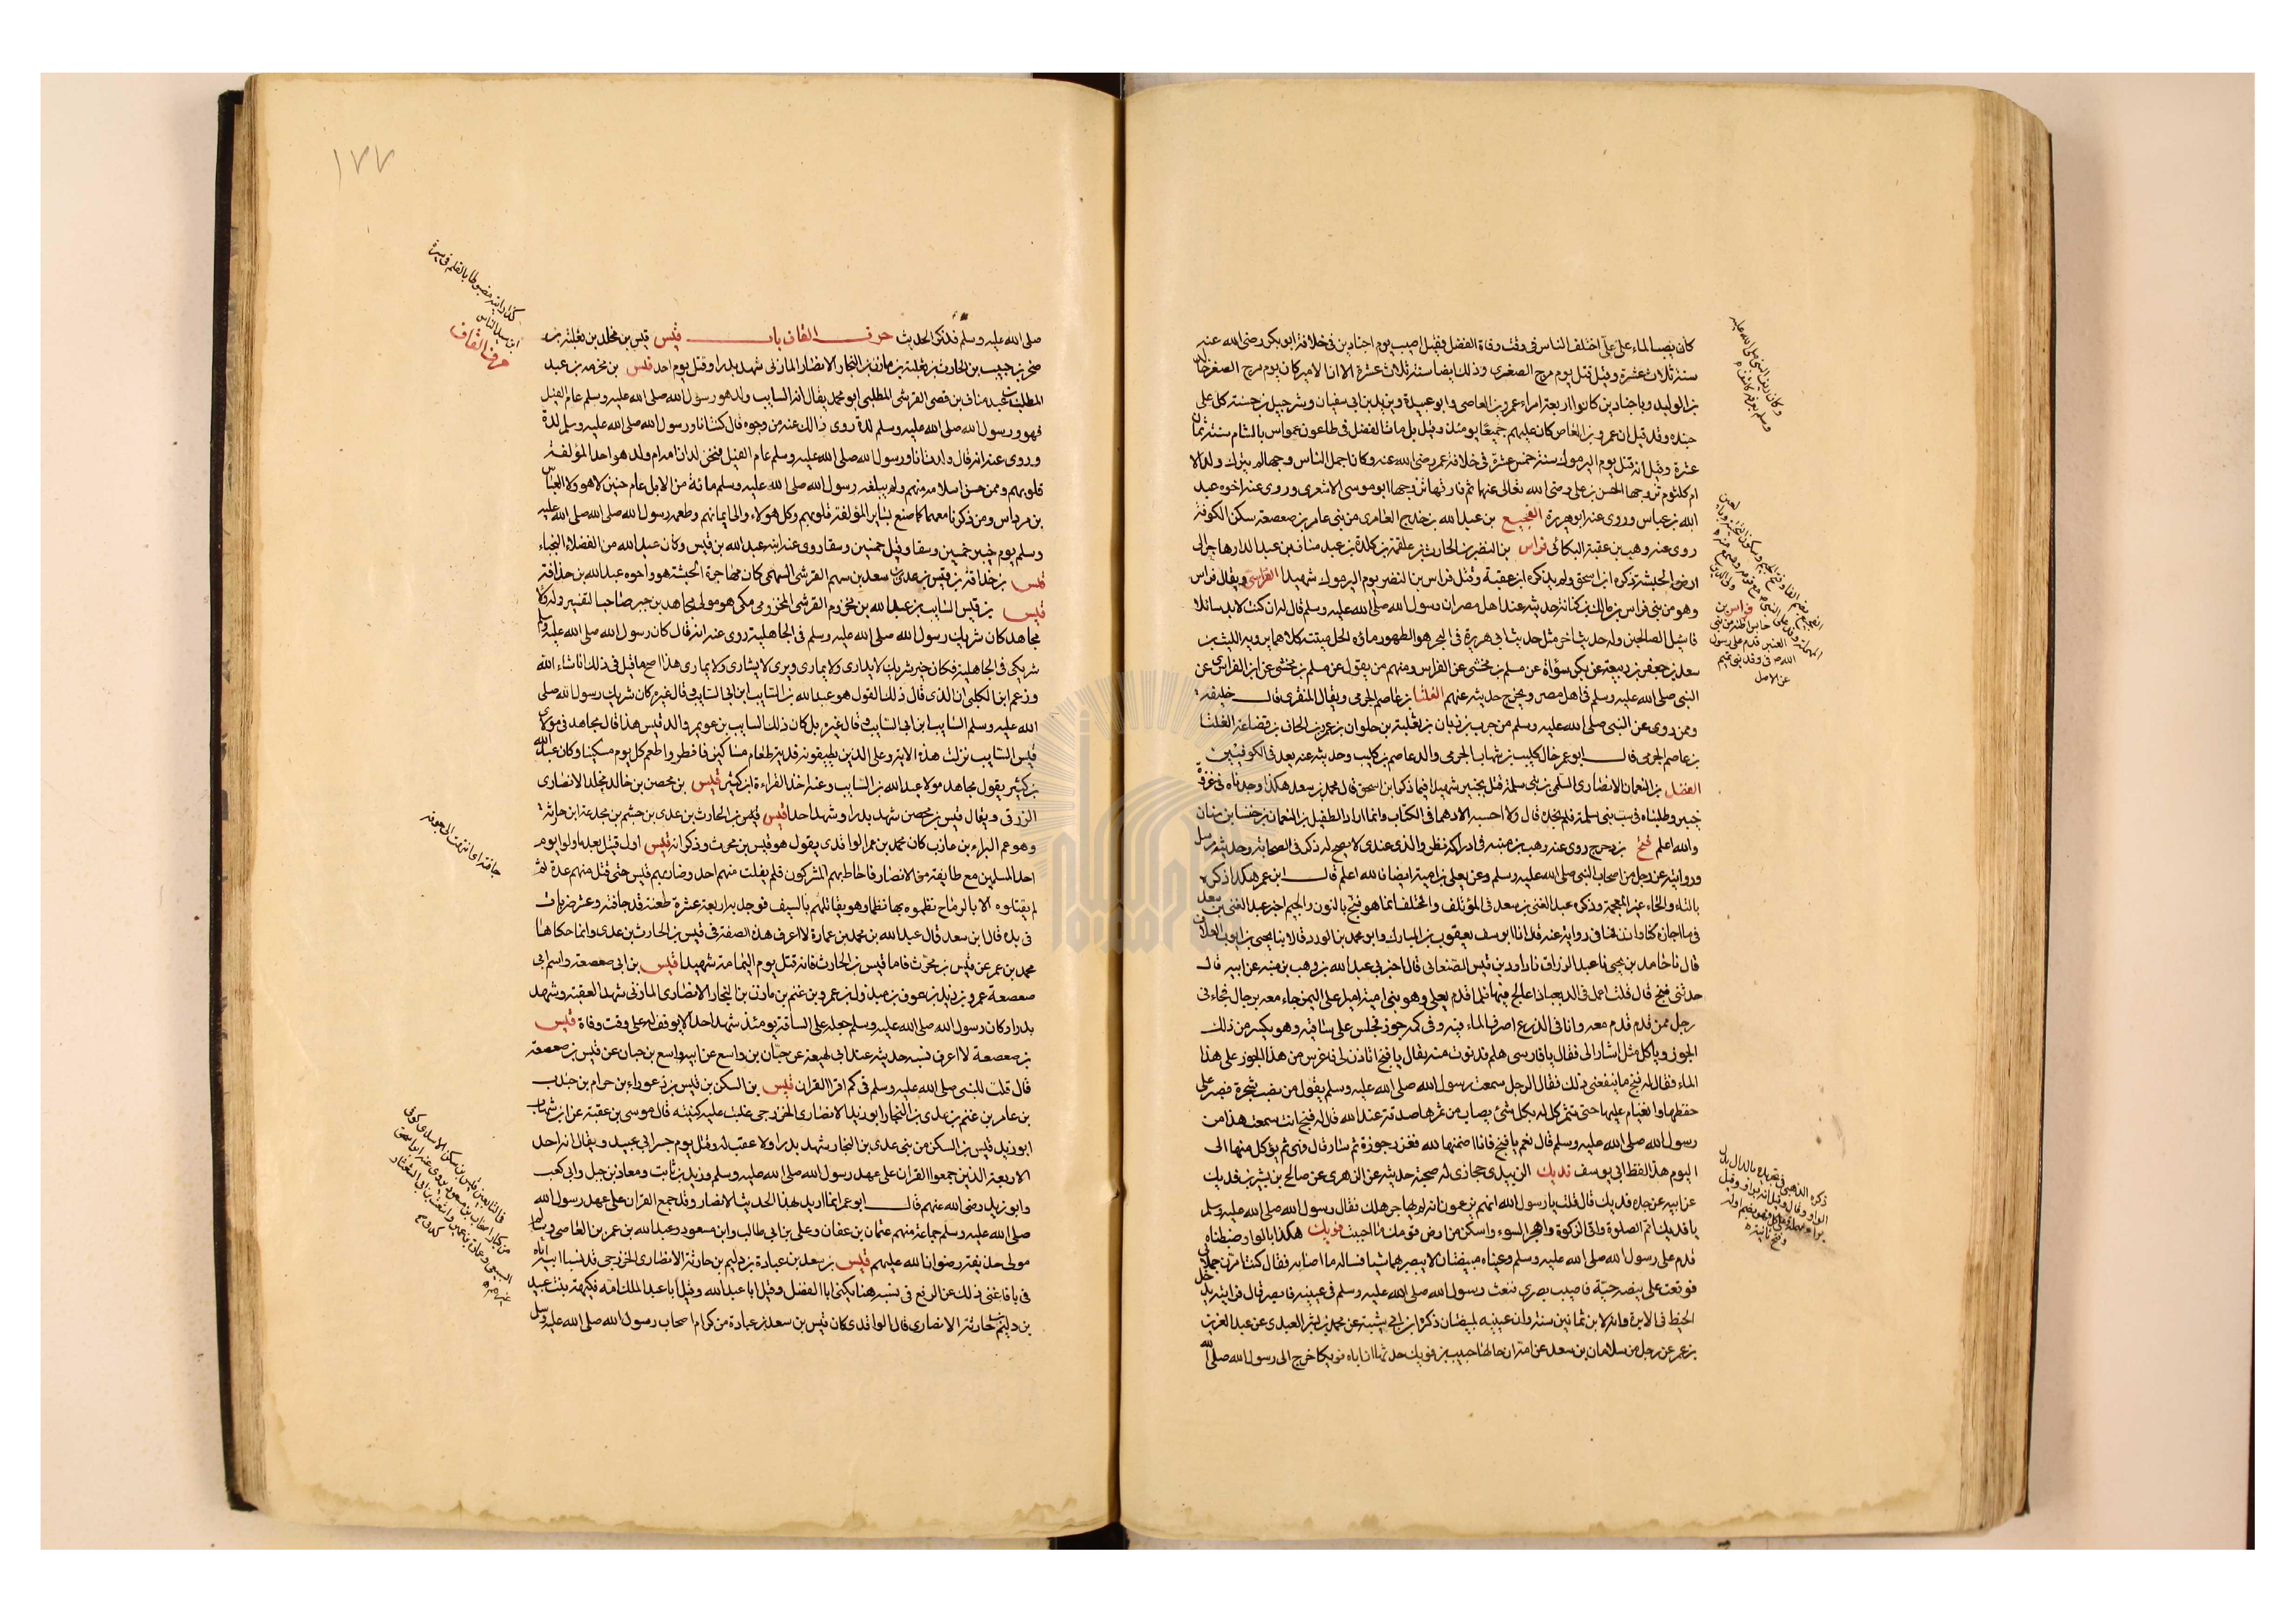 كان يصب الماء على علي اختلف الناس في وقت وفاة الفضل فقيل اصيب يوم اجنادين في خلافة ابو بكر رضي الله عنه
سنة ثلاث عشرة وقيل قتل يوم مرج الصفر وذلك ايضا سنة ثلاث عشرة الا ان الامير كان يوم مرج الصفر خالد
بن الوليد وباجنادين كانوا اربعة امراء عمرو بن العاصي وابو عبيدة ويزيد بن ابي سفيان وشرحبيل بن حسنة كل على
جنده وقد قيل ان عمرو بن العاص كان عليهم جميعا يومئذ وقيل بل مات الفضل في طاعون عمواس بالشام سنة ثمان
عشرة وقيل انه قتل يوم اليرموك سنة خمس عشرة في خلافة عمر رضي الله عنه وكان اجمل الناس وجها لم يترك ولدا الا
ام كلثوم تزوجها الحسن بن علي رضي الله تعالى عنها ثم فارقها تزوجها ابو موسى الاشعري وروى عنه اخوه عبد
الله بن عباس وروى عنه ابو هريرة الفجيع بن عبد الله بن جندح العامري من بني عامر بن صعصعة سكن الكوفة
روى عنه وهب بن عقبة البكائي فراس بن النضر بن الحارث بن علقمة بن كلدة بن عبد مناف بن عبد الدار هاجر الى
ارض الحبشة ذكره ابن اسحق ولم يذكره ابن عقبة وقتل فراس بن النضر يوم اليرموك شهيدا الفراسي ويقال فراس
وهو من بني فراس بن مالك بن كنانة حديثه عند اهل مصر ان رسول الله صلى الله عليه وسلم قال له ان كنت لابد سائلا
فاسئل الصالحين وله حديث اخر مثل حديث ابي هريرة في البحر هو الطهور ماؤه الحل ميتته كلاهما يرويه الليث بن
سعد بن جعفر بن ربيعة عن بكر بن سوادة عن مسلم بن مخشي عن الفراسي ومنهم من يقول عن مسلم بن مخشي عن ابن الفراسي عن
النبي صلى الله عليه وسلم في اهل مصر ومخرج حديثه عنهم الفلتان بن عاصم الجرمي ويقال المنقري قال خليفة
وممن روى عن النبي صلى الله عليه وسلم من جرم بن زبان بن ثعلبة بن حلوان بن عمرو بن الحاف بن قضاعة الفلتان
بن عاصم الجرمي قال ابو عمر خال كليب بن شهاب الجرمي والد عاصم بن كليب وحديثه عنه يعد في الكوفيين
الفضل بن النعمان الانصاري السلمي من بني سلمة قتل بخيبر شهيدا فيما ذكر ابن اسحق قال محمد بن سعد هكذا وجدناه في غزوة
خيبر وطلبناه في نسب بني سلمة فلم نجده قال ولا احسبه الا وهما في الكتاب وانما اراد الطفيل بن النعمان بن خنسا بن سنان
والله اعلم فنج بن دحرج روى عنه وهب بن منبه في ادراكه نظر والذي عندي لا يصح له ذكر في الصحابة وحديثه مرسل
وروايته عن رجل من اصحاب النبي صلى الله عليه وسلم وعن يعلى بن امية ايضا فالله اعلم قال ابن عمر هكذا ذكره
بالتاء والحاء غير المعجمة وذكره عبد الغني بن سعد في المؤتلف والمختلف انما هو فنج بالنون والجيم اخبر عبد الغني بن سعد
فيما اجاز كتاوا اذن لنا في روايته عنه قال انا ابو يوسف يعقوب بن المبارك وابو محمد بن الورد قالا نبا يحيى بن ايوب العلاف
قال نا حامد بن يحيى نا عبد الرزاق نا داود بن قيس الصنعاني قال اخبرني عبد الله بن وهب بن منبه عن ابيه قال
حدثني فنج قال فلت اعمل في الديباذ اعالج فيها فلما قدم يعلى وهو بني امية اميرا على اليمن جاء معه برجال فجاءني
رجل ممن قدم قدم معه وانا في الذرع اصرف الماء فيه وفي كمه جوز فجلس على ساقية وهو يكسر من ذلك
الجوز وياكل مثل اشار الى فقال يا فارسي هلم فدنوت منه فقال يا فنج اتاذن لي فاغرس من هذا الجوز على هذا
الماء فقال له فنج ما ينفعني ذلك فقال الرجل سمعت رسول الله صلى الله عليه وسلم يقول من نصب شجرة فصبر على
حفظها والقيام عليها حتى تثمر كل له بكل شئ يصاب من ثمرها صدقة عند الله قال له فنج انت سمعت هذا من
رسول الله صلى الله عليه وسلم قال نعم يا فنج فانا اضمنها لله فغرز جوزة ثم سار قال فهي ثم يؤكل منها الى
اليوم هذا لفظ ابي يوسف فديك الزبيدي حجازي له صحبة حديثه عن الزهري عن صالح بن بشير بن فديك
عن ابيه عن جده فديك قال قلت يا رسول الله انهم يزعمون انه لم يهاجر هلك فقال رسول الله صلى الله عليه وسلم
يا فديك اتم الصلوة واتي الزكوة واهجر السوء واسكن من ارض قومك ما احببت فويك هكذا بالواو ضبطناه
قدم على رسول الله صلى الله عليه وسلم وعيناه مبيضتان لا يبصر بهما شيا فساله ما اصابه فقال كنت امرن جملا لي
فوقعت على بيضة حية فاصيب بصري فنفث رسول الله صلى الله عليه وسلم في عينيه فابصر قال فرايته يدخل
الخيط في الابرة وانه لابن ثمانين سنة وان عينيه لمبيضتان ذكره ابن ابي شيبة عن محمد بن بشر العبدي عن عبد العزيز
بن عمر عن رجل من سلامان بن سعد عن امه ان خالها حبيب بن فويك حدثها ان اباه فويكا خرج الى رسول الله صلى الله
وكان رديف النبي صلى الله عليه
وسلم يوم عرفات
فراس بن
حابس اظنه من بني
العنبر قدم على رسول
الله ص في وفد بني تميم
عن الاصل
ذكره الذهبي في تجريده بالدال بدل
الواو وقال وقيل
١٧٧
صلى الله عليه وسلم فذكر الحديث حرف القاف باب قيس قيس بن مخلد بن ثعلبة بن
صخر بن حبيب بن الحارث بن ثعلبة بن مازن بن النجار الانصار المازني شهد بدرا وقتل يوم احد قيس بن مخرمة بن عبد
المطلب بن عبد مناف بن قصي القرشي المطلبي ابو محمد يقال ابو السايب ولد هو رسول الله صلى الله عليه وسلم عام الفيل
فهو ورسول الله صلى الله عليه وسلم لدة روى ذالك عنه من وجوه قال كنت انا ورسول الله صلى الله عليه وسلم لدة
وروى عنه انه قال ولدت انا ورسول الله صلى الله عليه وسلم عام الفيل فنحن لدان امرام ولد هو احد المؤلفة
قلوبهم وممن حسن اسلامه منهم ولم يبلغه رسول الله صلى الله عليه وسلم مائة من الابل عام حنين لا هو ولا العباس
بن مرداس ومن ذكرنا معهما كما صنع بسائر المؤلفة قلوبهم وكل هولاء والى ايمانهم وطعمه رسول الله صلى الله صلى الله عليه
وسلم يوم خيبر خمسين وسقا وقيل خمسين وسقا روى عنه ابنه عبد الله بن قيس وكان عبد الله من الفضلاء النجباء
قيس بن حذافة بن قيس بن عدي بن سعد بن سهم القرشي السهمي كان مهاجرة الحبشة هو واخوه عبد الله بن حذافة
قيس بن قيس السايب بن عبد الله بن مخزوم القرشي المخزومي مكي هو مولى مجاهد بن جبر صاحب التفسير وله ولاء
مجاهد كان شريك رسول الله صلى الله عليه وسلم في الجاهلية روى عنه انه قال كان رسول الله صلى الله عليه وسلم
شريكي في الجاهلية فكان خير شريك لا يداري ولا يماري ويروى لا يشاري ولا يماري هذا اصح ما قيل في ذلك ان شاء الله
وزعم ابن الكلبي ان الذي قال ذلك القول هو عبد الله بن السايب ابن ابي السايب وقال غيره كان شريك رسول الله صلى
الله عليه وسلم السايب ابن ابي السايب وقال غيره بل كان ذلك السايب بن عويمر والد قيس هذا قال مجاهد في مولاي
قيس السايب نزلت هذه الاية وعلى الذين يطيقونه فدية طعام مساكين فافطر واطعم كل يوم مسكينا وكان عبد الله
بن كثير يقول مجاهد مولا عبد الله بن السايب وعنه اخذ القراءة ابن كثير قيس بن محصن بن خالد مخلد الانصاري
الزرقي ويقال قيس بن حصن شهد بدرا وشهد احدا قيس قيس بن الحارث بن عدي بن جشم بن مجدعة ابن حارثة
وهو عم البراء بن عازب كان محمد بن عمر الواقدي يقول هو قيس بن محرث وذكر انه قيس اول قتيل بعد ما ولوا يوم
احد المسلمين مع طايفة من الانصار فاحاط بهم المشركون فلم يفلت منهم احد وضاربهم قيس حتى قتل منهم عدة ثم
لم يقتلوه الا بالرماح نظموه بها نظما وهو يقاتلهم بالسيف فوجد به اربعة عشرة طعنة قد جافته وعشر ضربات
في بدنه قال ابن سعد قال عبد الله بن محمد بن عمارة لا اعرف هذه الصفة في قيس بن الحارث بن عدي وانما حكاها
محمد بن عمر عن قيس بن محرث فاما قيس بن الحارث فانه قتل يوم اليمامة شهيدا قيس بن ابي صعصعة واسم ابي
صعصعة عمرو بن زيد بن عوف بن مبذول بن عمرو بن غنم بن مازن بن النجار الانصاري المازني شهد العقبة وشهد
بدرا وكان رسول الله صلى الله عليه وسلم جعله على الساقة يومئذ شهد احدا لا يوقف له على وقت وفاة قيس
بن صعصعة لا اعرف نسبه حديثه عند ابي لهيعة عن حبان بن واسع عن ابيه واسع بن حبان عن قيس بن صعصعة
قال قلت للنبي صلى الله عليه وسلم في كم اقرا القران قيس بن السكن بن قيس بن زعوراء بن حرام بن جندب
بن عامر بن غنم بن عدي بن النجار ابو زيد الانصاري الخزرجي غلبت عليه كنيته قال موسى بن عقبة عن ابن شهاب
ابو زيد قيس بن السكن من بني عدي بن النجار شهد بدرا ولا عقب له وقتل يوم جسر ابي عبيد ويقال انه احد
الاربعة الذين جمعوا القران على عهد رسول الله صلى الله عليه وسلم وزيد بن ثابت ومعاذ بن جبل وابي كعب
وابو زيد رضي الله عنهم قال ابو عمر انما اريد بهذا الحديث الانصار وقد جمع القران على عهد رسول الله
صلى الله عليه وسلم جماعة منهم عثمان بن عفان وعلي بن ابي طالب وابن مسعود وعبد الله بن عمرو بن العاصي وسالم
مولى حذيفة رضوان الله عليهم قيس بن سعد بن عبادة بن دليم بن حارثة الانصاري الخزرجي قد نسبنا ابيه اباه
في بابه فاغنى ذلك عن الرفع في نسبه هنا يكنى ابا الفضل وقيل ابا عبد الله وقيل ابا عبد الملك امه فكيهة بنت عبيد
بن دليم بن حارثة الانصاري قال الواقدي كان قيس بن سعد بن عبادة من كرام اصحاب رسول الله صلى الله عليه وسلم
كذا رايته مضبوطا بالقلم في سيرة
ابن سيد الناس
حرف القاف
جافته اي انتهت الى جوفه